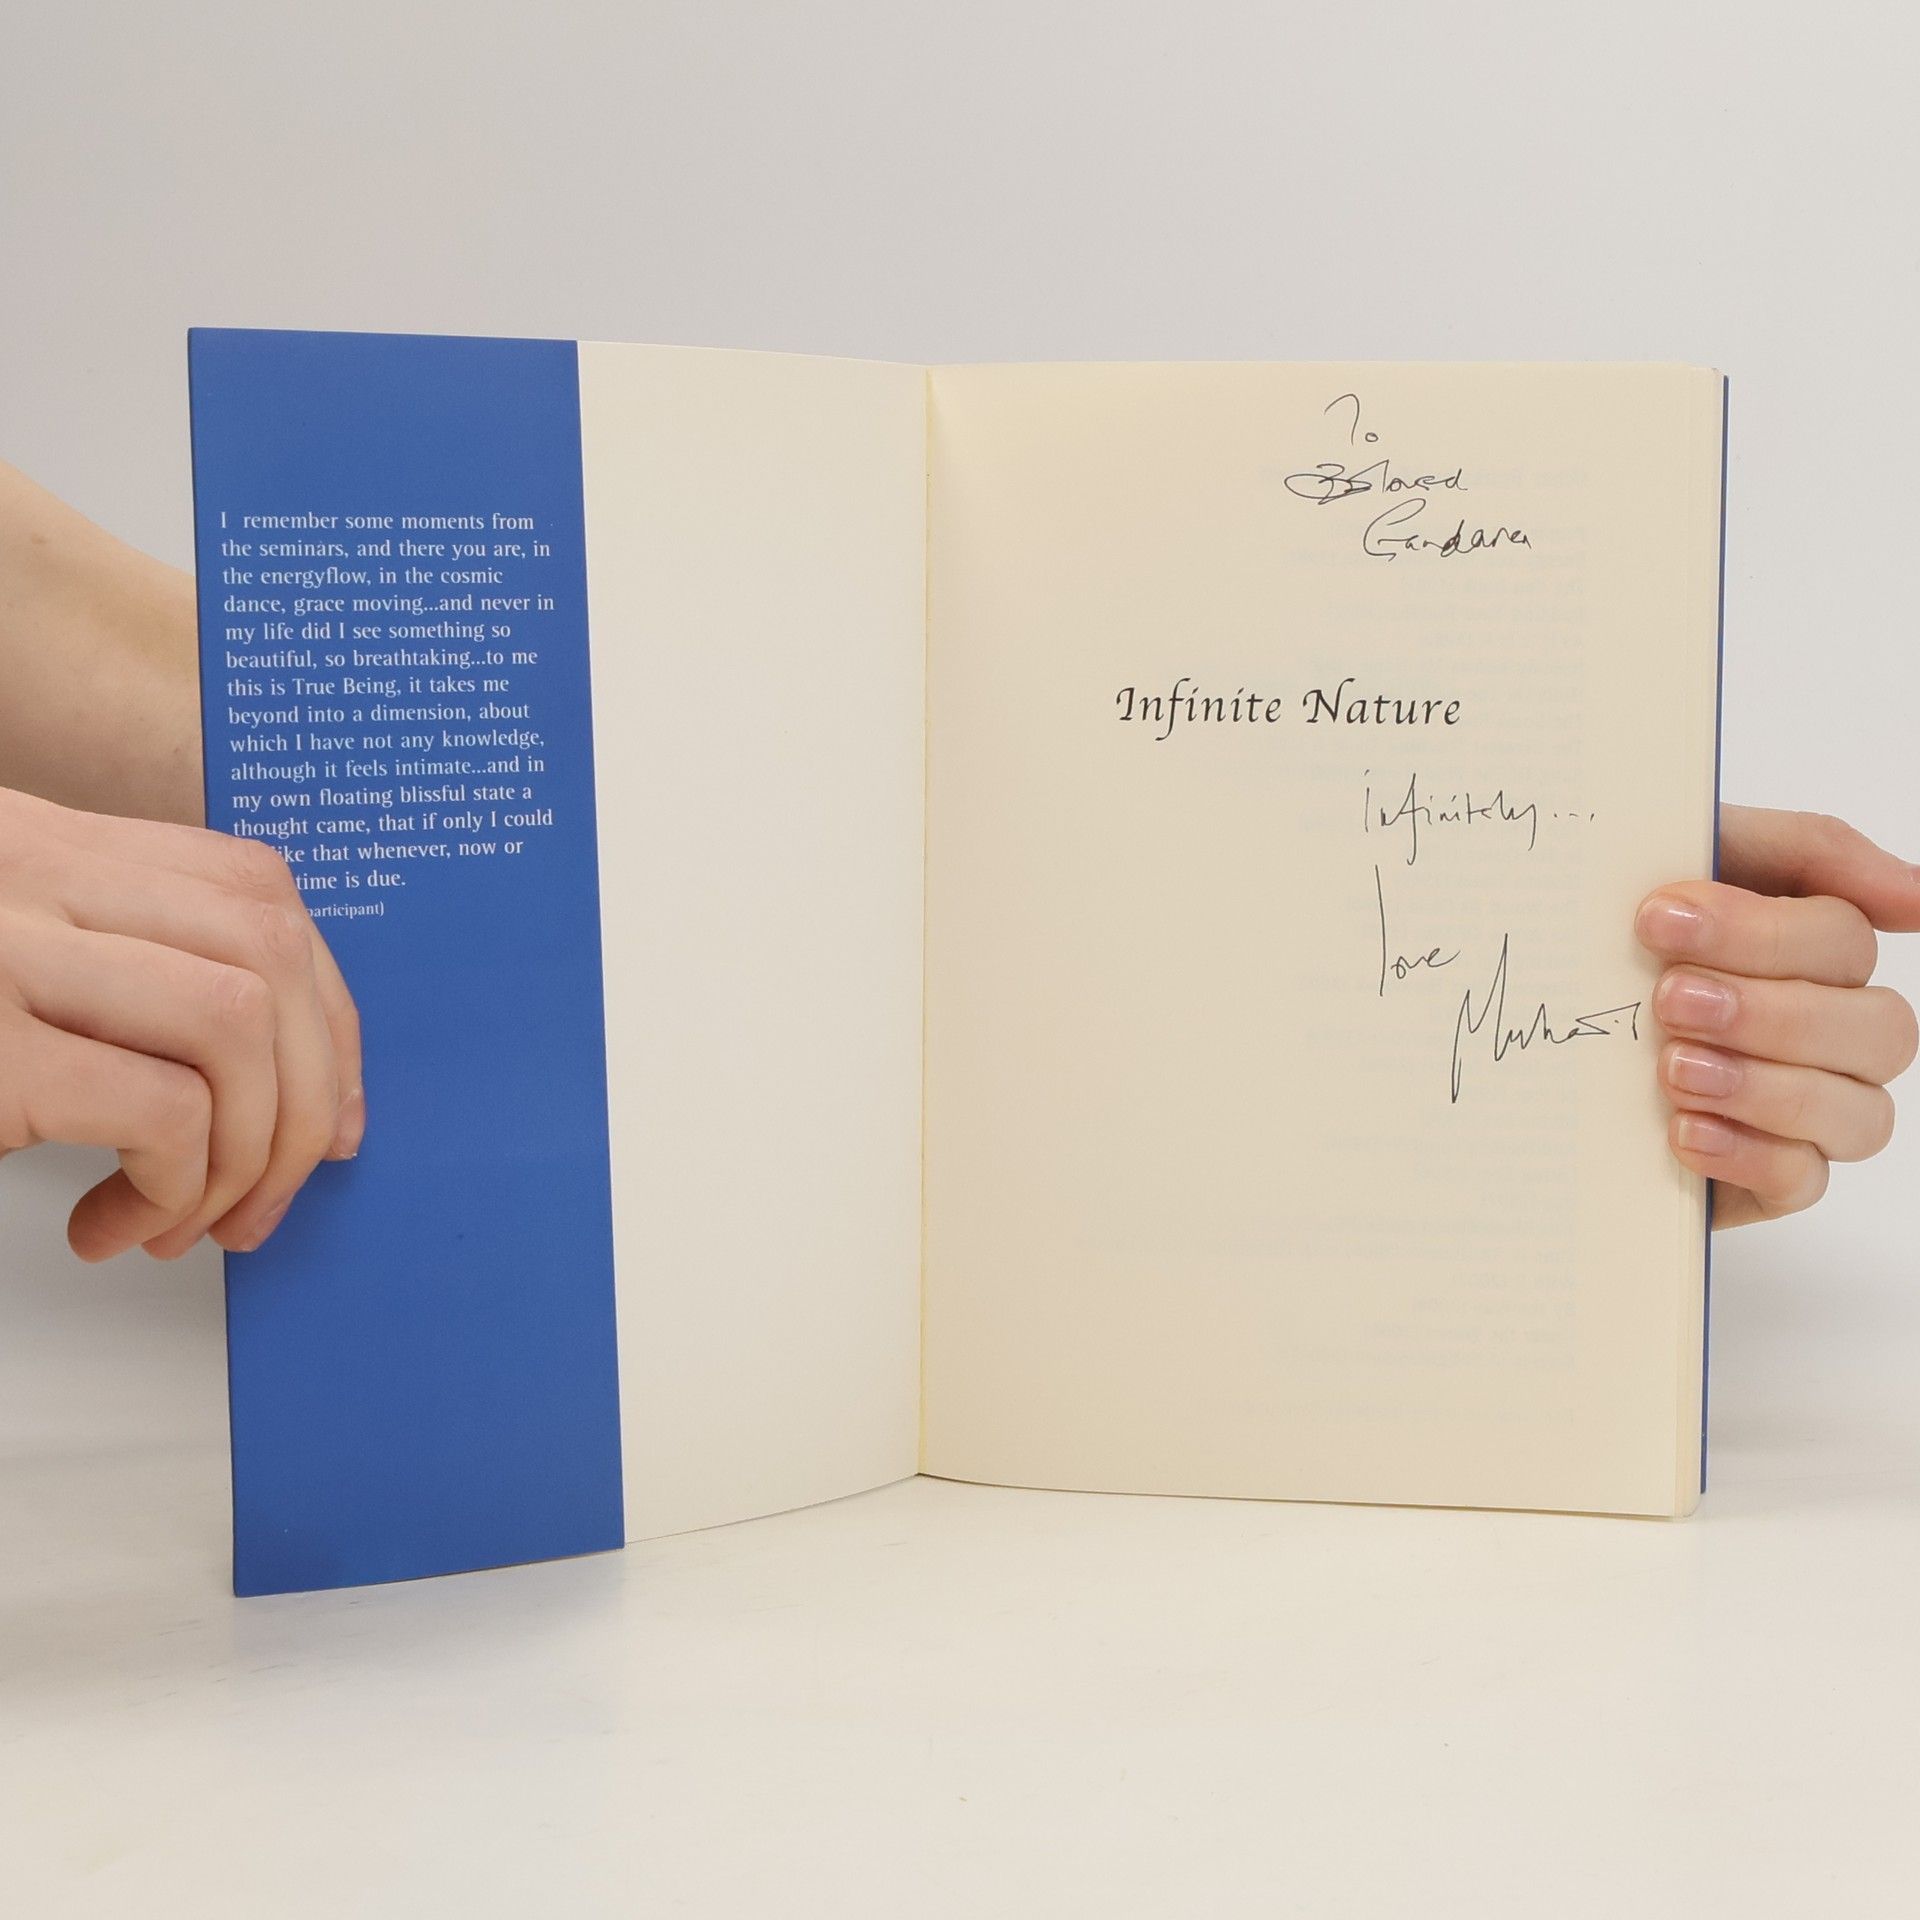 I remember some moments from
the seminars, and there you are, in
the energyflow, in the cosmic
dance, grace moving...and never in
my life did I see something so
beautiful, so breathtaking...to me
this is True Being, it takes me
beyond into a dimension, about
which I have not any knowledge,
although it feels intimate...and in
my own floating blissful state a
thought came, that if only I could
like that whenever, now or
time is due.
participant)
To
Beloved
Infinite Nature
infinitely...
love